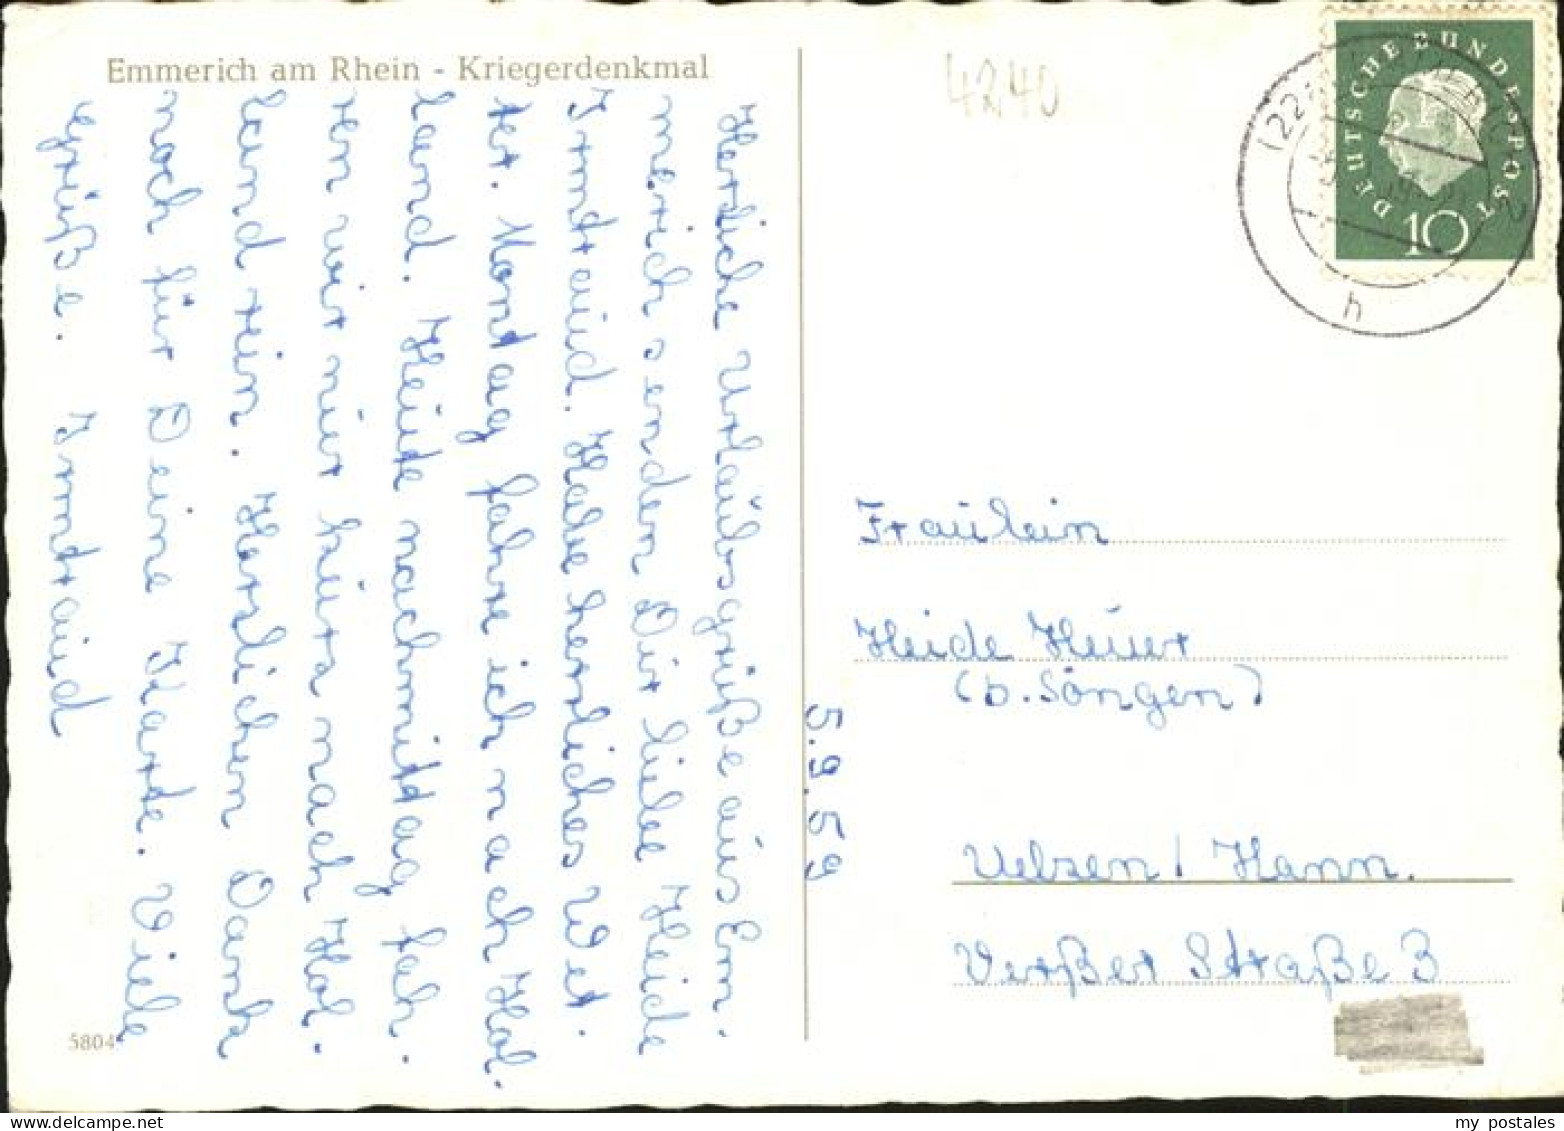 Emmerich am Rhein - Kriegerdenkmal
Herzliche Urlaubsgrüße aus Em-
merich senden Dir liebe Heide
Irmtraud. Habe herrliches Wet-
ter. Montag fahre ich nach Hol-
land. Heute nachmittag fah-
ren wir nur kurz nach Hol-
land rein. Herzlichen Dank
noch für Deine Karte. Viele
Grüße. Irmtraud
5.9.59
5804
4240
DEUTSCHE BUNDESPOST
10
h
Fräulein
Heide Heuer
(b. Söngen)
Uelzen / Hann.
Verßer Straße 3
my postales